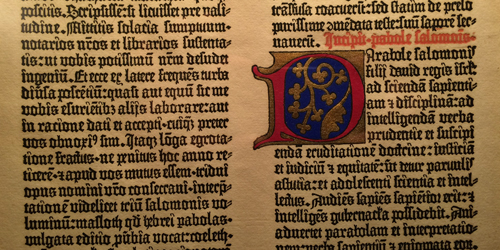 posciūs. Scripsissem: si licuisset pre vali-
tudine. Mittitis solacia sumptuum:
notarios nr̄os et librarios sustenta-
tis: ut vobis potissimū nr̄m desudet
ingeniū. Et ecce ex latere freq̄ues turba
diūsa poscētiū: quasi aut equū sit me
vobis esuriētibꝫ alijs laborare: aut
in ratione dati et accepti. cuiq̄ preter
vos obnoxiꝰ sim. Itaqꝫ lōga egrota-
tione fractus. ne penitus hoc anno re-
ticerē. ⁊ apud vos mutus essem. tridui
opus nomini vr̄o consecraui. interp̄-
tationē videlicet triū salomonis vo-
luminū: masloth qd̄ hebrei ꝑabolas.
vulgata editio ꝓūbia vocat: coeleth.
sunt de prelo
purissime ꝯmēdata teste: suū saporē ser-
uauerit. Incipiūt ꝑabole salomonis
Parabole salomonis
filij dauid regis isrl̄:
ad sciendā sapienti-
am ⁊ disciplinā: ad
intelligendā verba
prudentie et suscipi-
endā eruditionē doctrine: iusticiā
et iudiciū ⁊ equitatē: ut detur paruulis
astucia: et adolescenti sciencia et intel-
lectus. Audiēs sapiēs sapiētior erit: ⁊
intelligēs gubernacla possidebit. Ani-
aduertet parabolam et interpreta-
tionem: verba sapientiū ⁊ enigmata eorum.